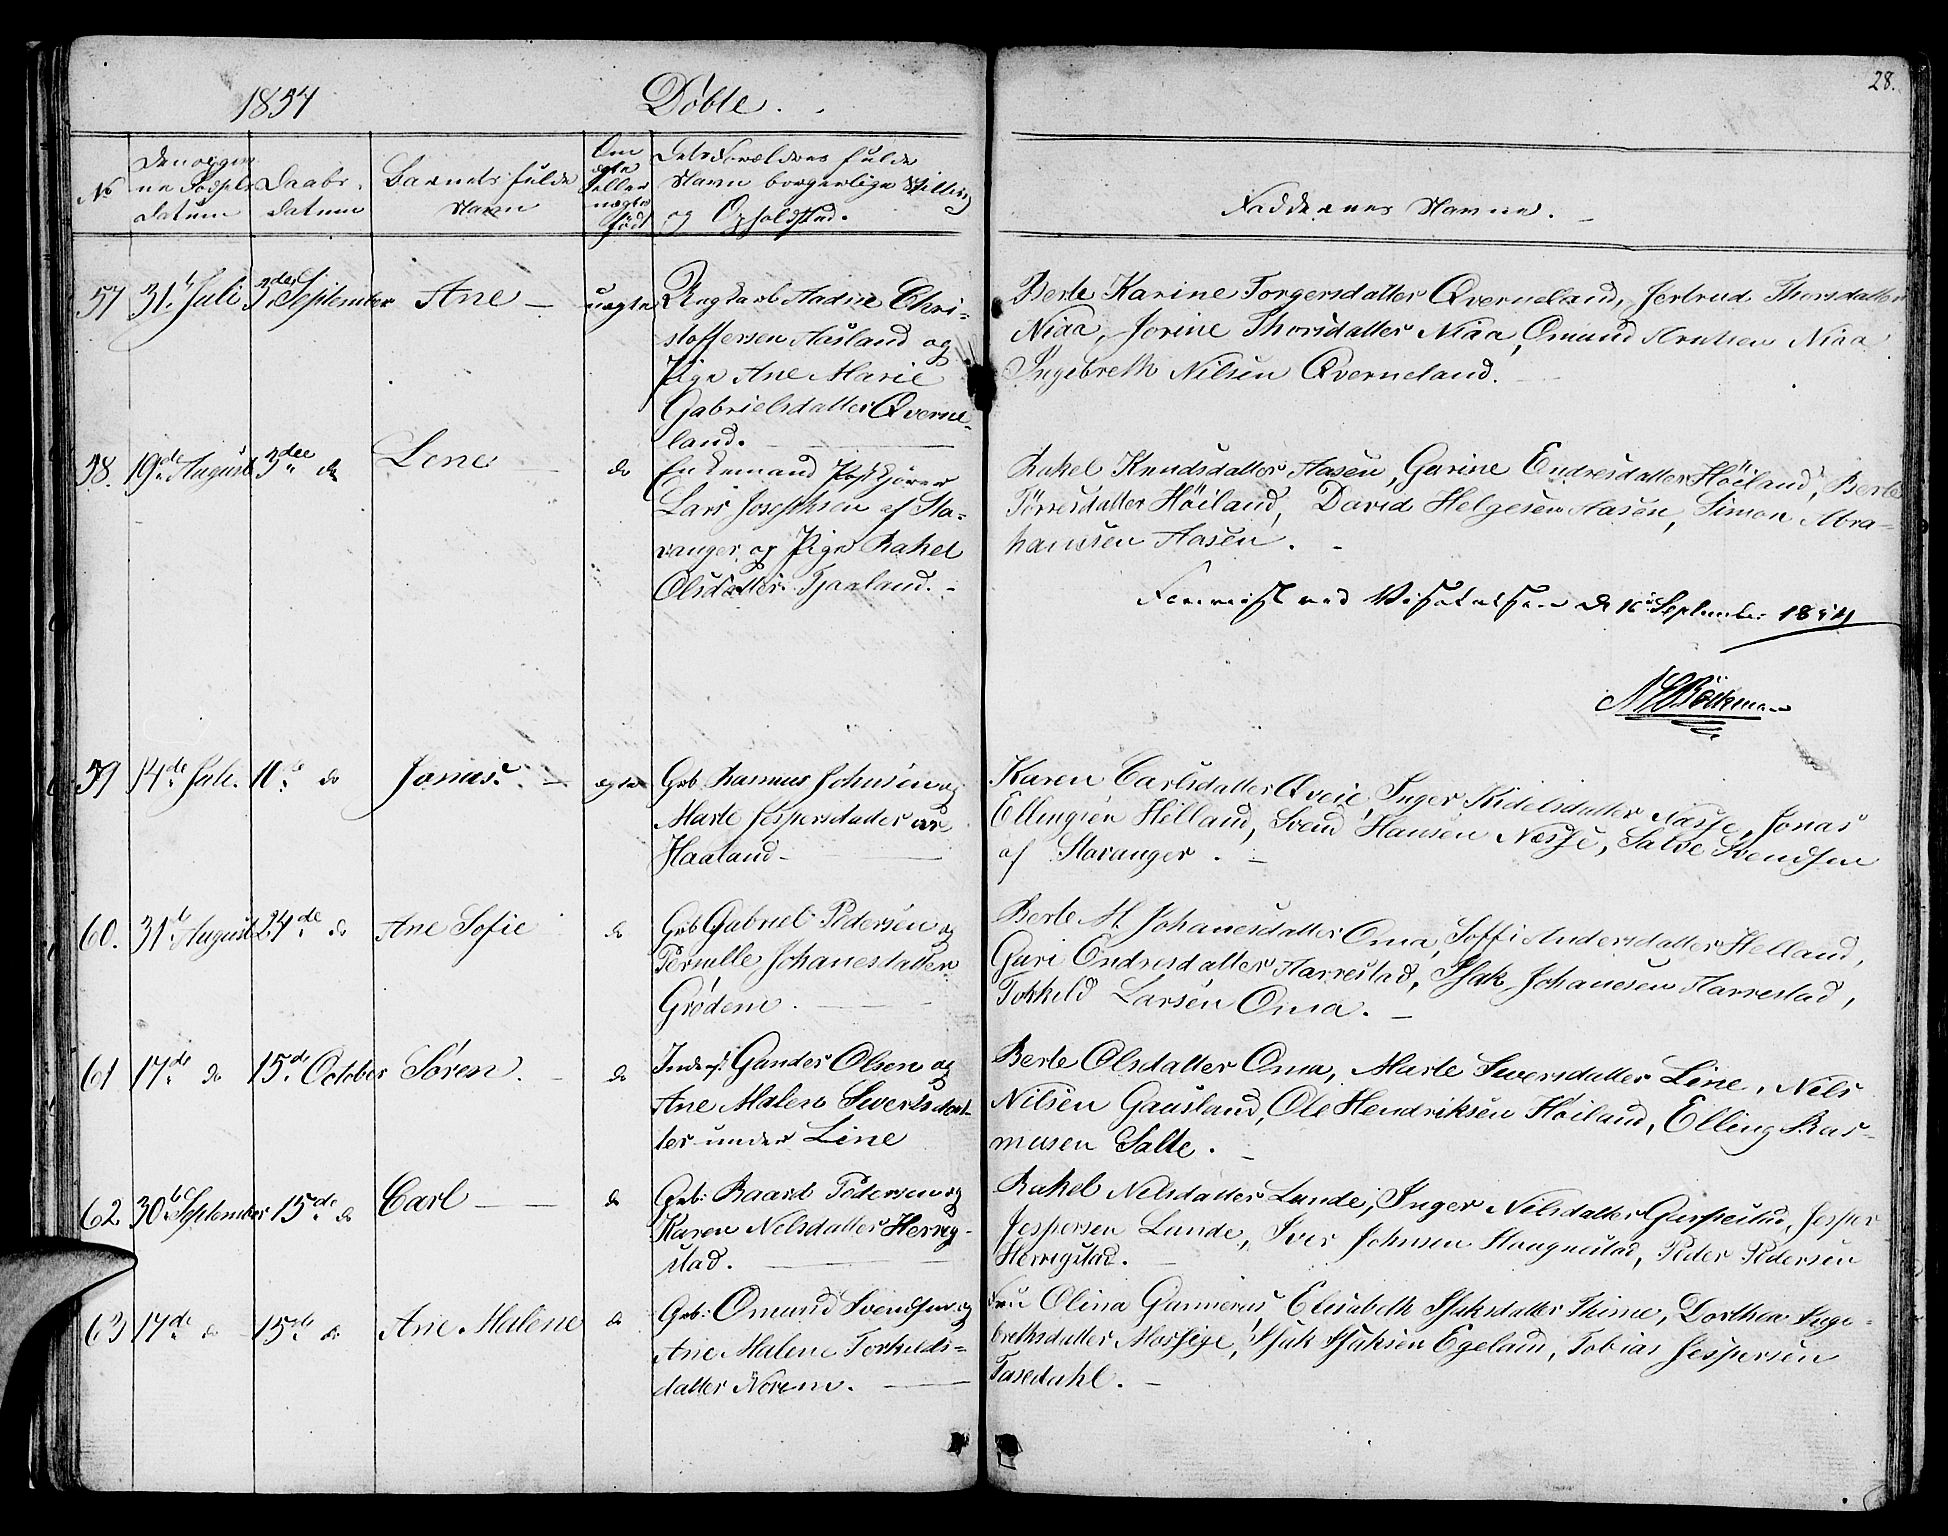 1854 Døbte.
28.
No
Datum
Daabs-
datum
Barnets fulde
Navn
Om
ægte
eller
uægte
født
Forældres fulde
Navn borgerlige Stilling
og Opholdsted.
Faddernes Navne.
57 31t Juli 3die September Ane — uægte Ungkarl Aadne Chri-
stoffersen Aasland og
Pige Ane Marie
Gabrielsdatter Qverne-
land.
Berte Karine Torgersdatter Qverneland, Jertrud Thorsdatter
Niaa, Jorine Thorsdatter Niaa, Omund Arntsen Niaa
Ingebreth Nilsen Qverneland.
58. 19de August 3die do Lene — do Enkemand
Lars Josephsen af Sta-
vanger og Pige Rahel
Olsdatter Tjaaland.
Rahel Knudsdatter Aasen, Gurine Endresdatter Höiland, Berte
Törresdatter Höiland, David Helgesen Aasen, Simon Abra-
hamsen Aasen.
Foreviist ved Visitatsen d 16 September 1854
59 14de Juli. 10de do Jonas. — ægte Gb. Rasmus Johnsen og
Marte Jespersdatter
Haaland —
Karen Carlsdatter Qveie, Inger Kidelsdatter Næsse, Jonas
Ellingsen Helland, Svend Hansen Næsse, Salve Svendsen
af Stavanger.
60. 31t August 24de do Ane Sofie do Gb Gabriel Pedersen og
Pernille Johanesdatter
Grödem.
Berte M. Johanesdatter Oma, Soffi Andersdatter Helland,
Guri Ondresdatter Harrestad, Isak Johanesen Harrestad,
Torkild Larsen Oma.
61 17de do 15de October Sören. — do Inders. Gunder Olsen og
Ane Malene Sivertsdat-
ter under Line
Berte Olsdatter Oma, Marte Siversdatter Line, Nils
Nilsen Gausland, Ole Hendriksen Höiland, Elling Ras-
musen Salte.
62 30t September 15de do Carl — do Gb: Baard Pedersen og
Karen Nelsdatter Herrig-
stad.
Rahel Nelsdatter Lunde, Inger Nilsdatter Garpestad, Jesper
Jespersen Lunde, Iver Johnsen Haugnestad, Peder Pedersen
Herrigstad.
63 17de do 15de do Ane Malene do Gb: Omund Svendsen og
Ane Malene Torkilds-
datter Norem.
Fru Olina Gunnerus Elisabeth Isaksdatter Thime, Dorthea Inge-
brethsdatter Mossige, Isak Isaksen Egeland, Tobias Jespersen
Tasedahl.